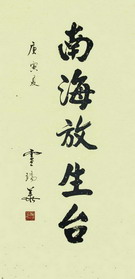 南海放生台
庚寅夏
雲瑞華